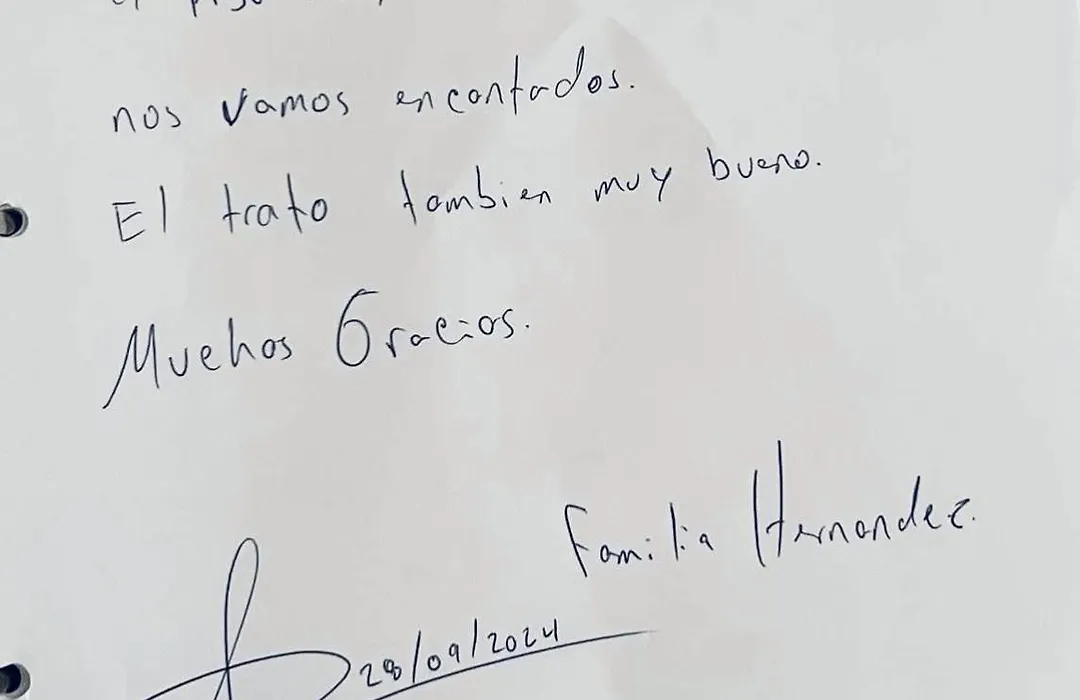 nos vamos encantados.
El trato tambien muy bueno.
Muchas Gracias.
Familia Hernandez.
28/09/2024